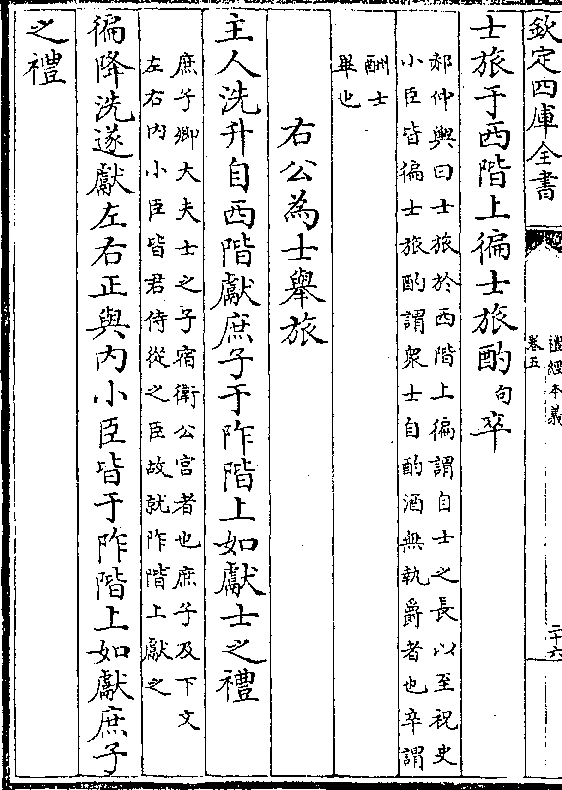 欽定四庫全書
禮經本義
卷五
二十六
士旅于西階上徧士旅酌句卒
郝仲輿曰士旅於西階上徧謂自士之長以至祝史
小臣皆徧士旅酌謂衆士自酌酒無執爵者也卒謂
酬士
畢也
右公為士舉旅
主人洗升自西階獻庶子于阼階上如獻士之禮
庶子卿大夫士之子宿衛公宮者也庶子及下文
左右內小臣皆君侍從之臣故就阼階上獻之
徧降洗遂獻左右正與內小臣皆于阼階上如獻庶子
之禮